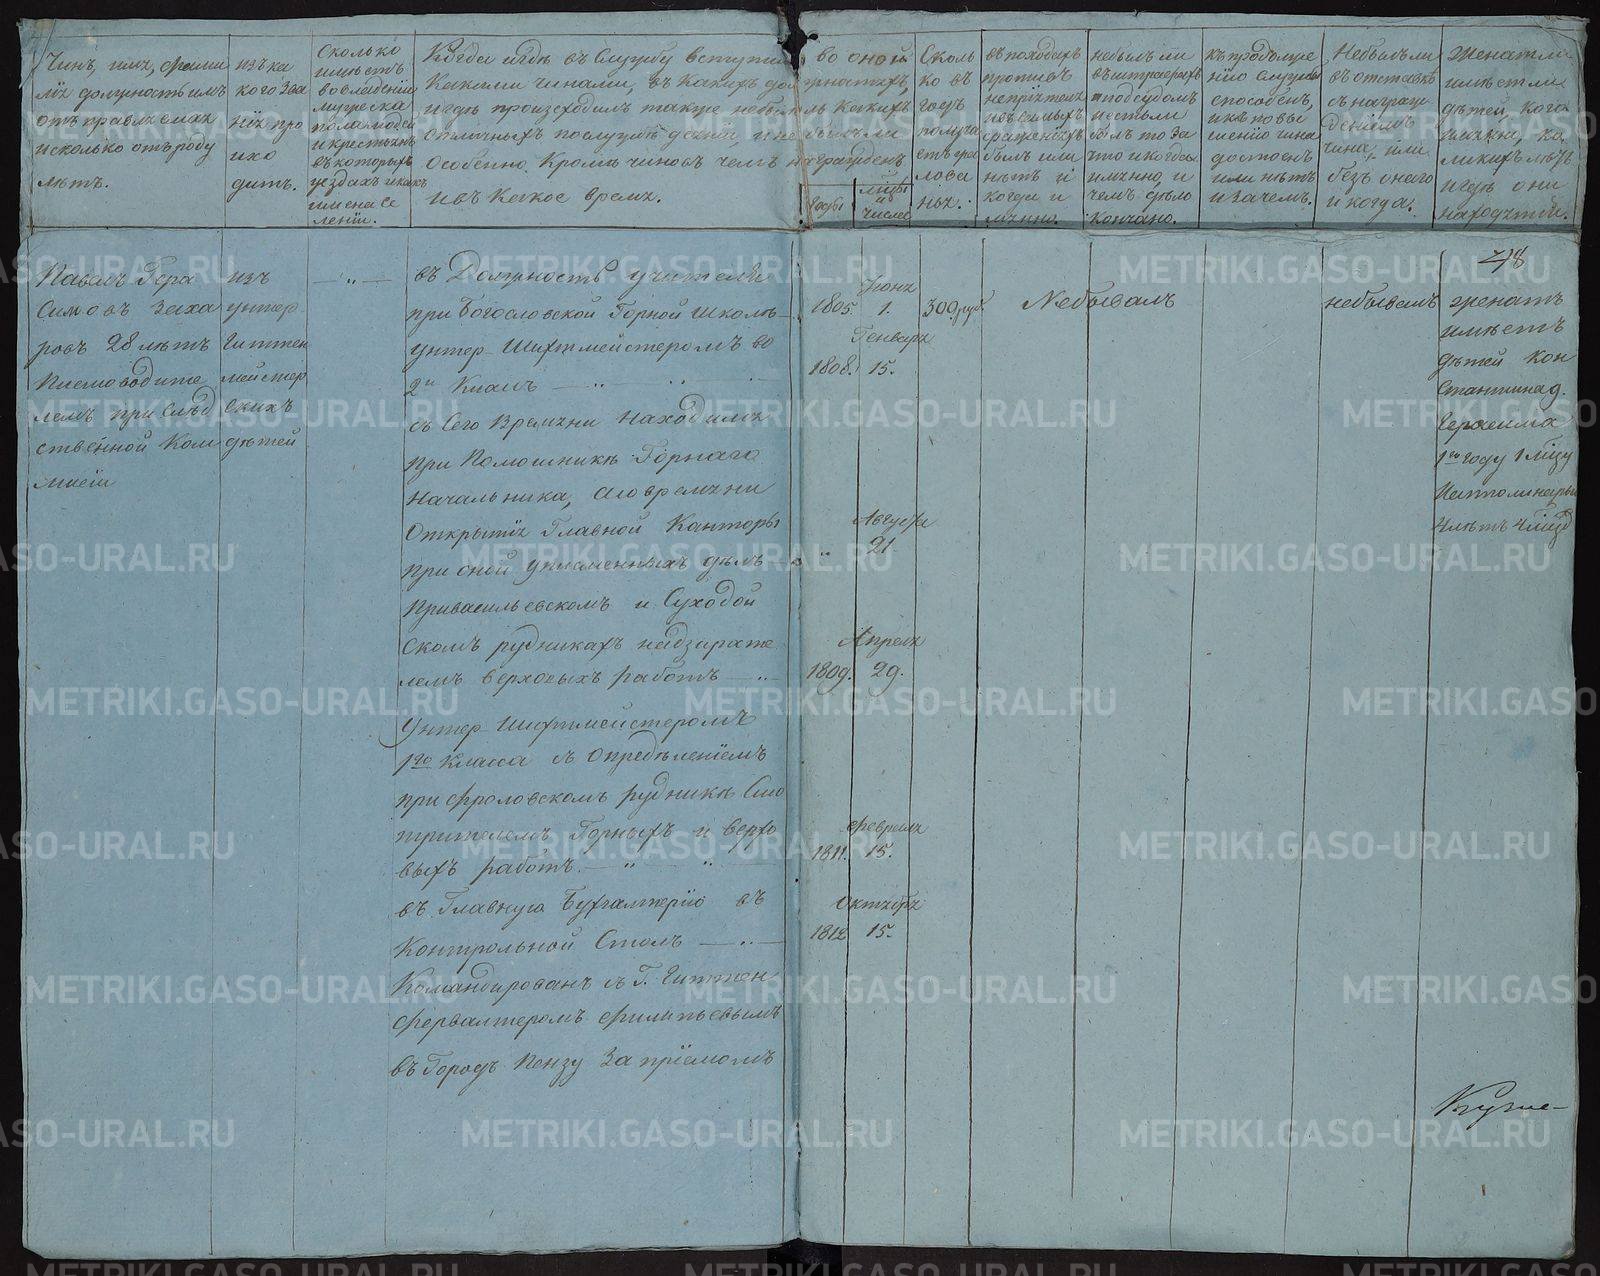 Чинъ, имя, фами
лія должность имъ
отправляемая
и сколько отъ роду
лѣтъ.
изъ ка
кого зва
нія про
ихо
дитъ.
Сколько
имѣетъ
во владѣніи
мужеска
пола людей
и крестьянъ
въ которыхъ
уѣздахъ и какъ
имена се
леніи.
Когда и гдѣ въ службу вступилъ во оной
какими чинами, въ какихъ должностяхъ,
и гдѣ произходилъ также небыло ль какихъ
отличныхъ послугамъ даяни, и не былъ ли
особенно кромѣ чиновъ чемъ награжденъ
и въ какое время.
Годы
мѣсяцы
и
числа
Сколь
ко въ
годъ
получа
етъ жа
лова
нья.
въ походахъ
противъ
непріятеля
и въ самыхъ
сраженіяхъ
былъ или
нѣтъ и
когда и
имянно.
небылъ ли
въ штрафахъ
и подъ судомъ
и естьли
былъ то за
что и когда
имянно, и
чемъ дѣло
кончано.
къ продолже
нію службы
способенъ,
и къ повы
шенію чина
достоенъ
или нѣтъ
и зачемъ.
Небылъ ли
въ отставкѣ
съ награж
деніемъ
чина, или
безъ онаго
и когда.
Женатъ ли
имѣетъ ли
дѣтей, кого
имянно, ка
кихъ лѣтъ
и гдѣ они
находятся.
48
Павелъ Гера
симовъ Заха
ровъ 28 лѣтъ
Писмоводите
лемъ при Слѣд
ственной Ком
мисіи
изъ
унтер
Гиттен
мейстер
скихъ
дѣтей
— „ —
въ Должность учителя
при Богословской Горной школѣ —
унтер-Шихтмейстеромъ во
2м Класѣ — „ „ „
съ Сего времяни находился
при Помошникѣ Горнаго
Начальника, а со времяни
Открытія Главной Канторы
при оной у писменныхъ дѣлъ
При Васильевскомъ и Суходой
скомъ рудникахъ надзирате
лемъ верховыхъ работъ — „
Унтер Шихтмейстеромъ
1го Класса съ опредѣленіемъ
при Фроловскомъ рудникѣ Смо
трителемъ Горныхъ и верхо
выхъ работъ. — „ — „ —
въ Главную Бухгалтерію въ
Контрольной Столъ — „ —
Командированъ съ Г. Гиттен
фервалтеромъ Филипьевымъ
въ Городъ Пензу За пріемомъ
Іюня
1805. 1.
Генваря
1808. 15.
Августа
„ 21.
Апреля
1809. 29.
Февраля
1811. 15.
Октября
1812 15.
300 руб.
Небывалъ
небывалъ
женатъ
имѣетъ
дѣтей Кон
стантина 9.
Герасима
1го году 1 мѣсяцу
4 лѣтъ 4 мѣсяц
METRIKI.GASO-URAL.RU